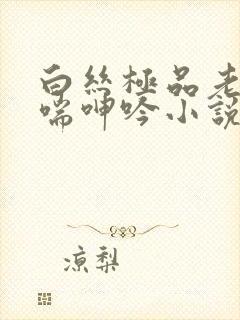 白丝極品老
喘呻吟小說
凉梨